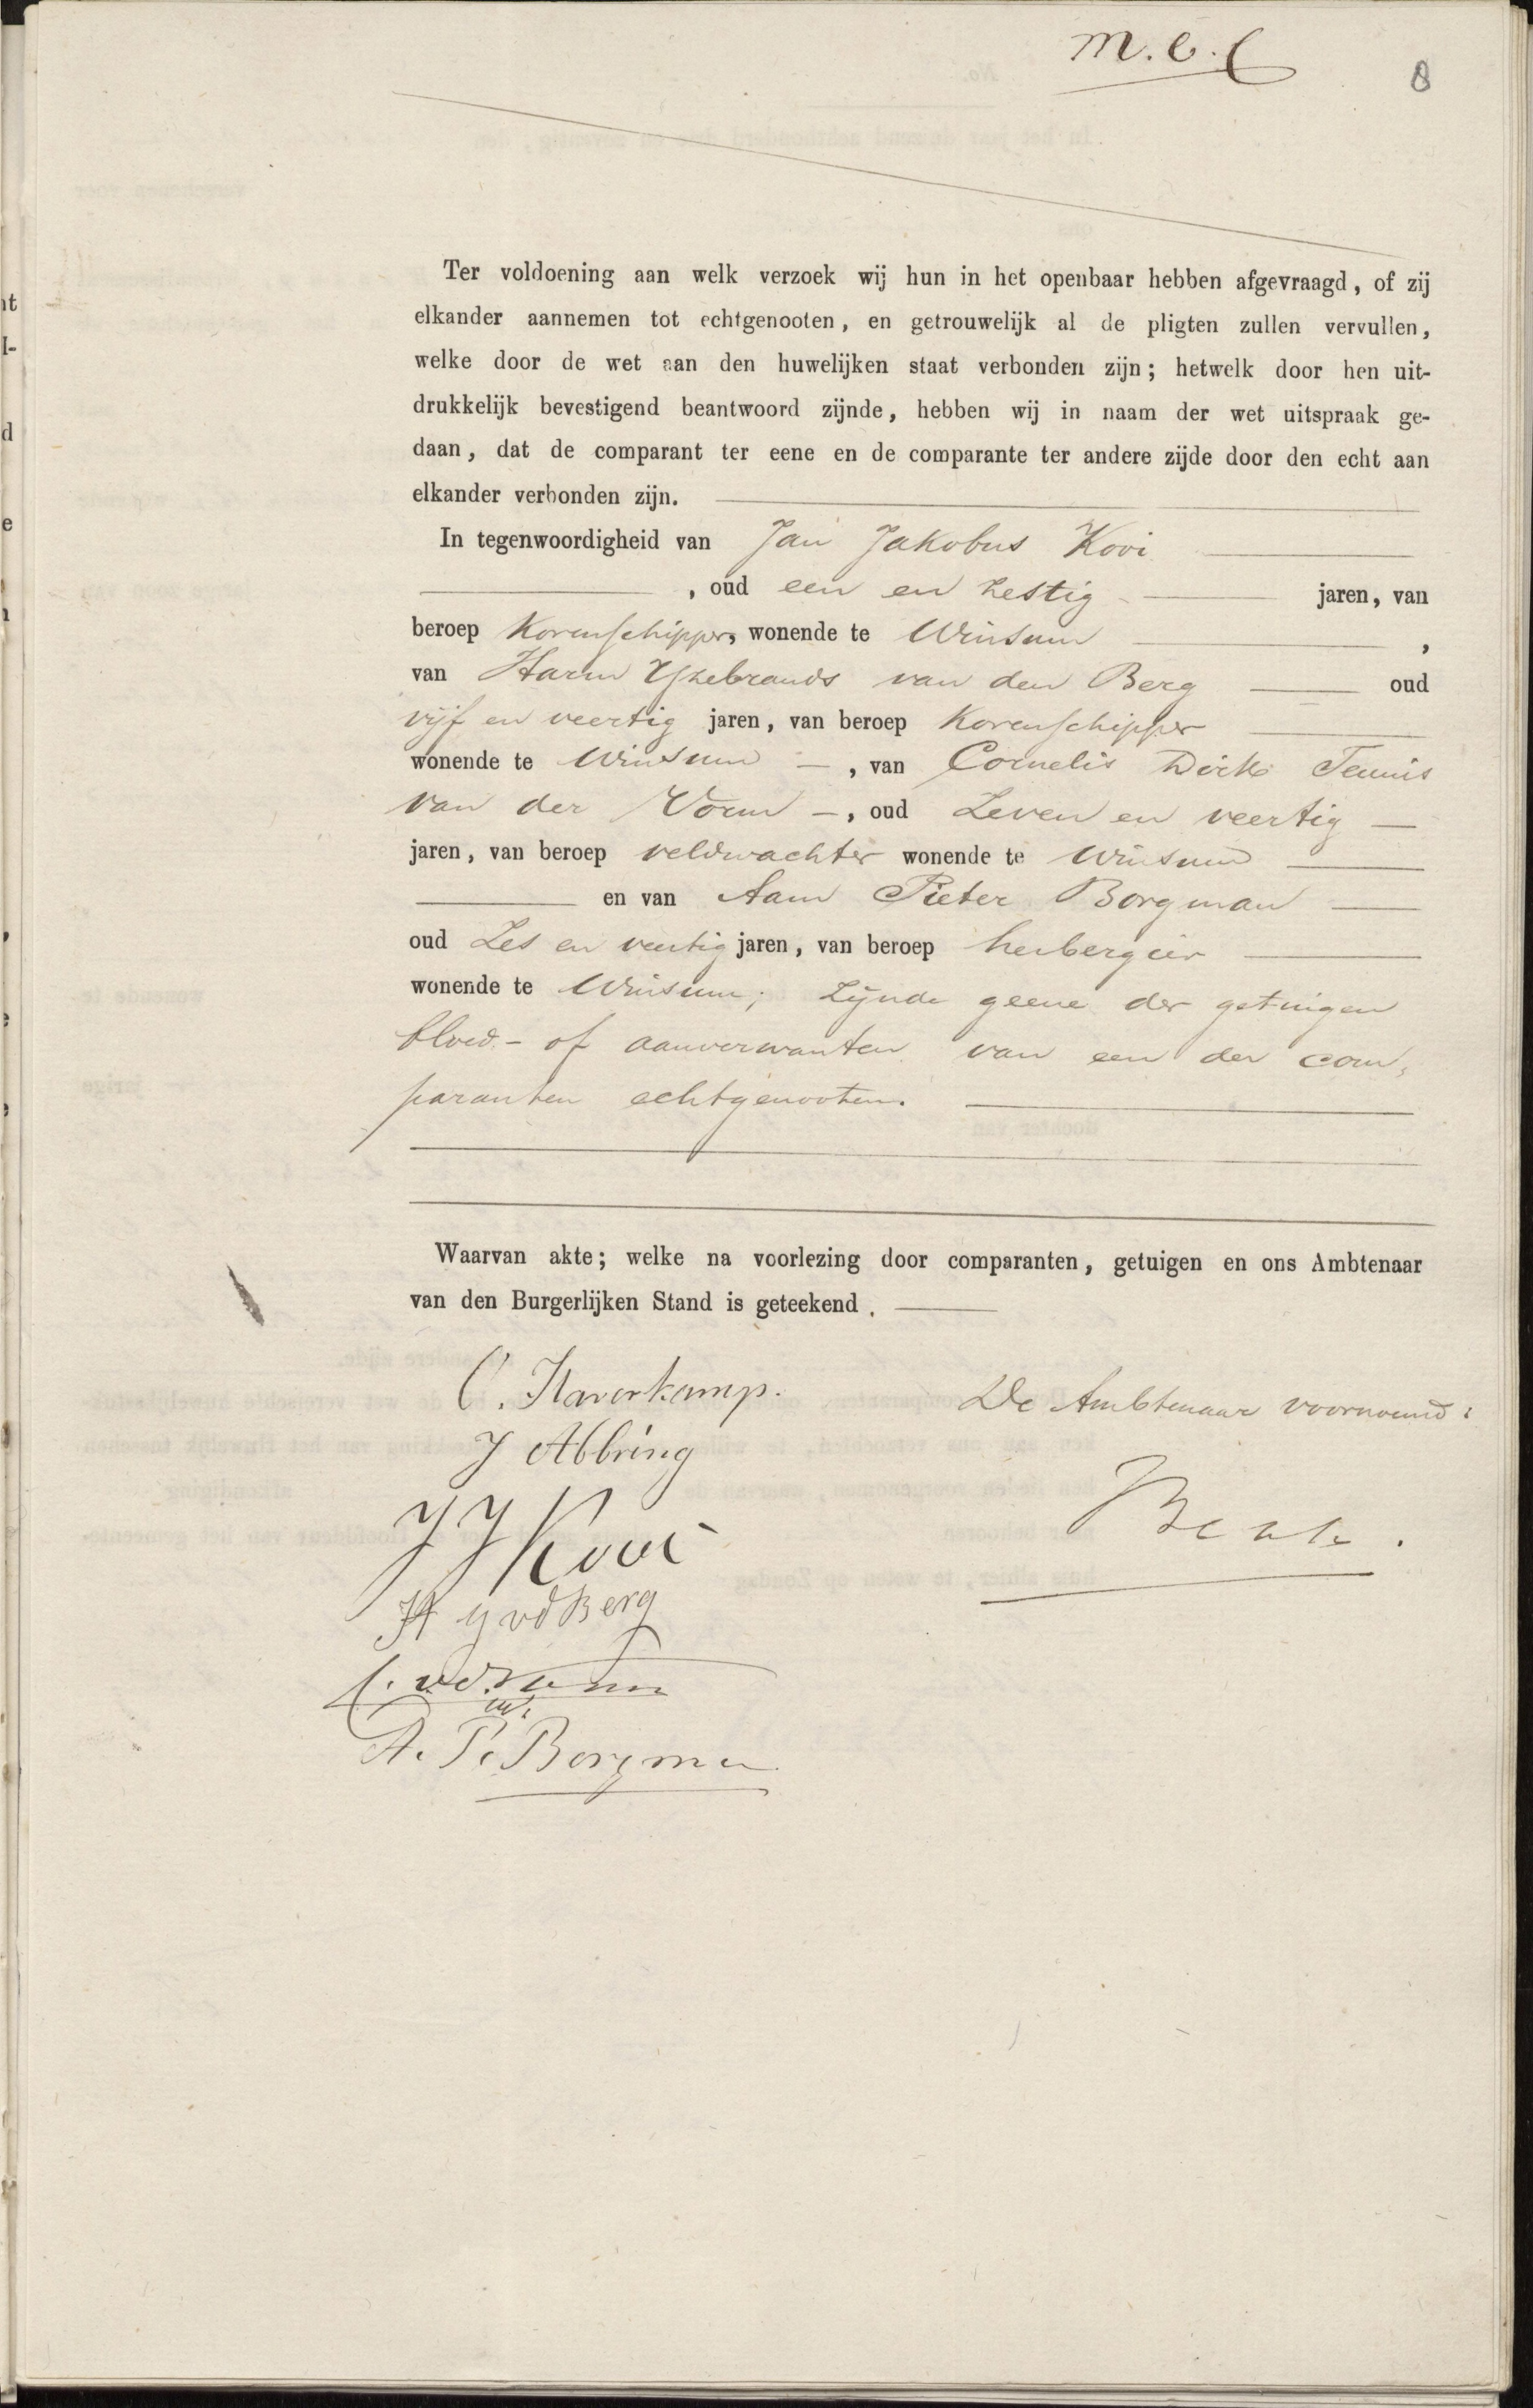 8
Ter voldoening aan welk verzoek wij hun in het openbaar hebben afgevraagd, of zij
elkander aannemen tot echtgenooten, en getrouwelijk al de pligten zullen vervullen,
welke door de wet aan den huwelijken staat verbonden zijn; hetwelk door hen uit-
drukkelijk bevestigend beantwoord zijnde, hebben wij in naam der wet uitspraak ge-
daan, dat de comparant ter eene en de comparante ter andere zijde door den echt aan
elkander verbonden zijn.
In tegenwoordigheid van Jan Jakobus Kooi
, oud een en zestig jaren, van
beroep Korenschipper, wonende te Winsum ,
van Harm Yzebrands van den Berg oud
vijf en veertig jaren, van beroep Korenschipper
wonende te Winsum —, van Cornelis Dirk Teunis
van der Vorm —, oud Zeven en veertig —
jaren, van beroep veldwachter wonende te Winsum
en van Aam Pieter Borgman
oud Zes en veertig jaren, van beroep herbergier
wonende te Winsum; Zijnde geene der getuigen
bloed- of aanverwanten van een der com-
paranten echtgenooten.
Waarvan akte; welke na voorlezing door comparanten, getuigen en ons Ambtenaar
van den Burgerlijken Stand is geteekend.
C. Haverkamp.
De Ambtenaar voornoemd:
J Abbring
J J Kooi
H Y vd Berg
C. vd. Vorm
A. P. Borgman